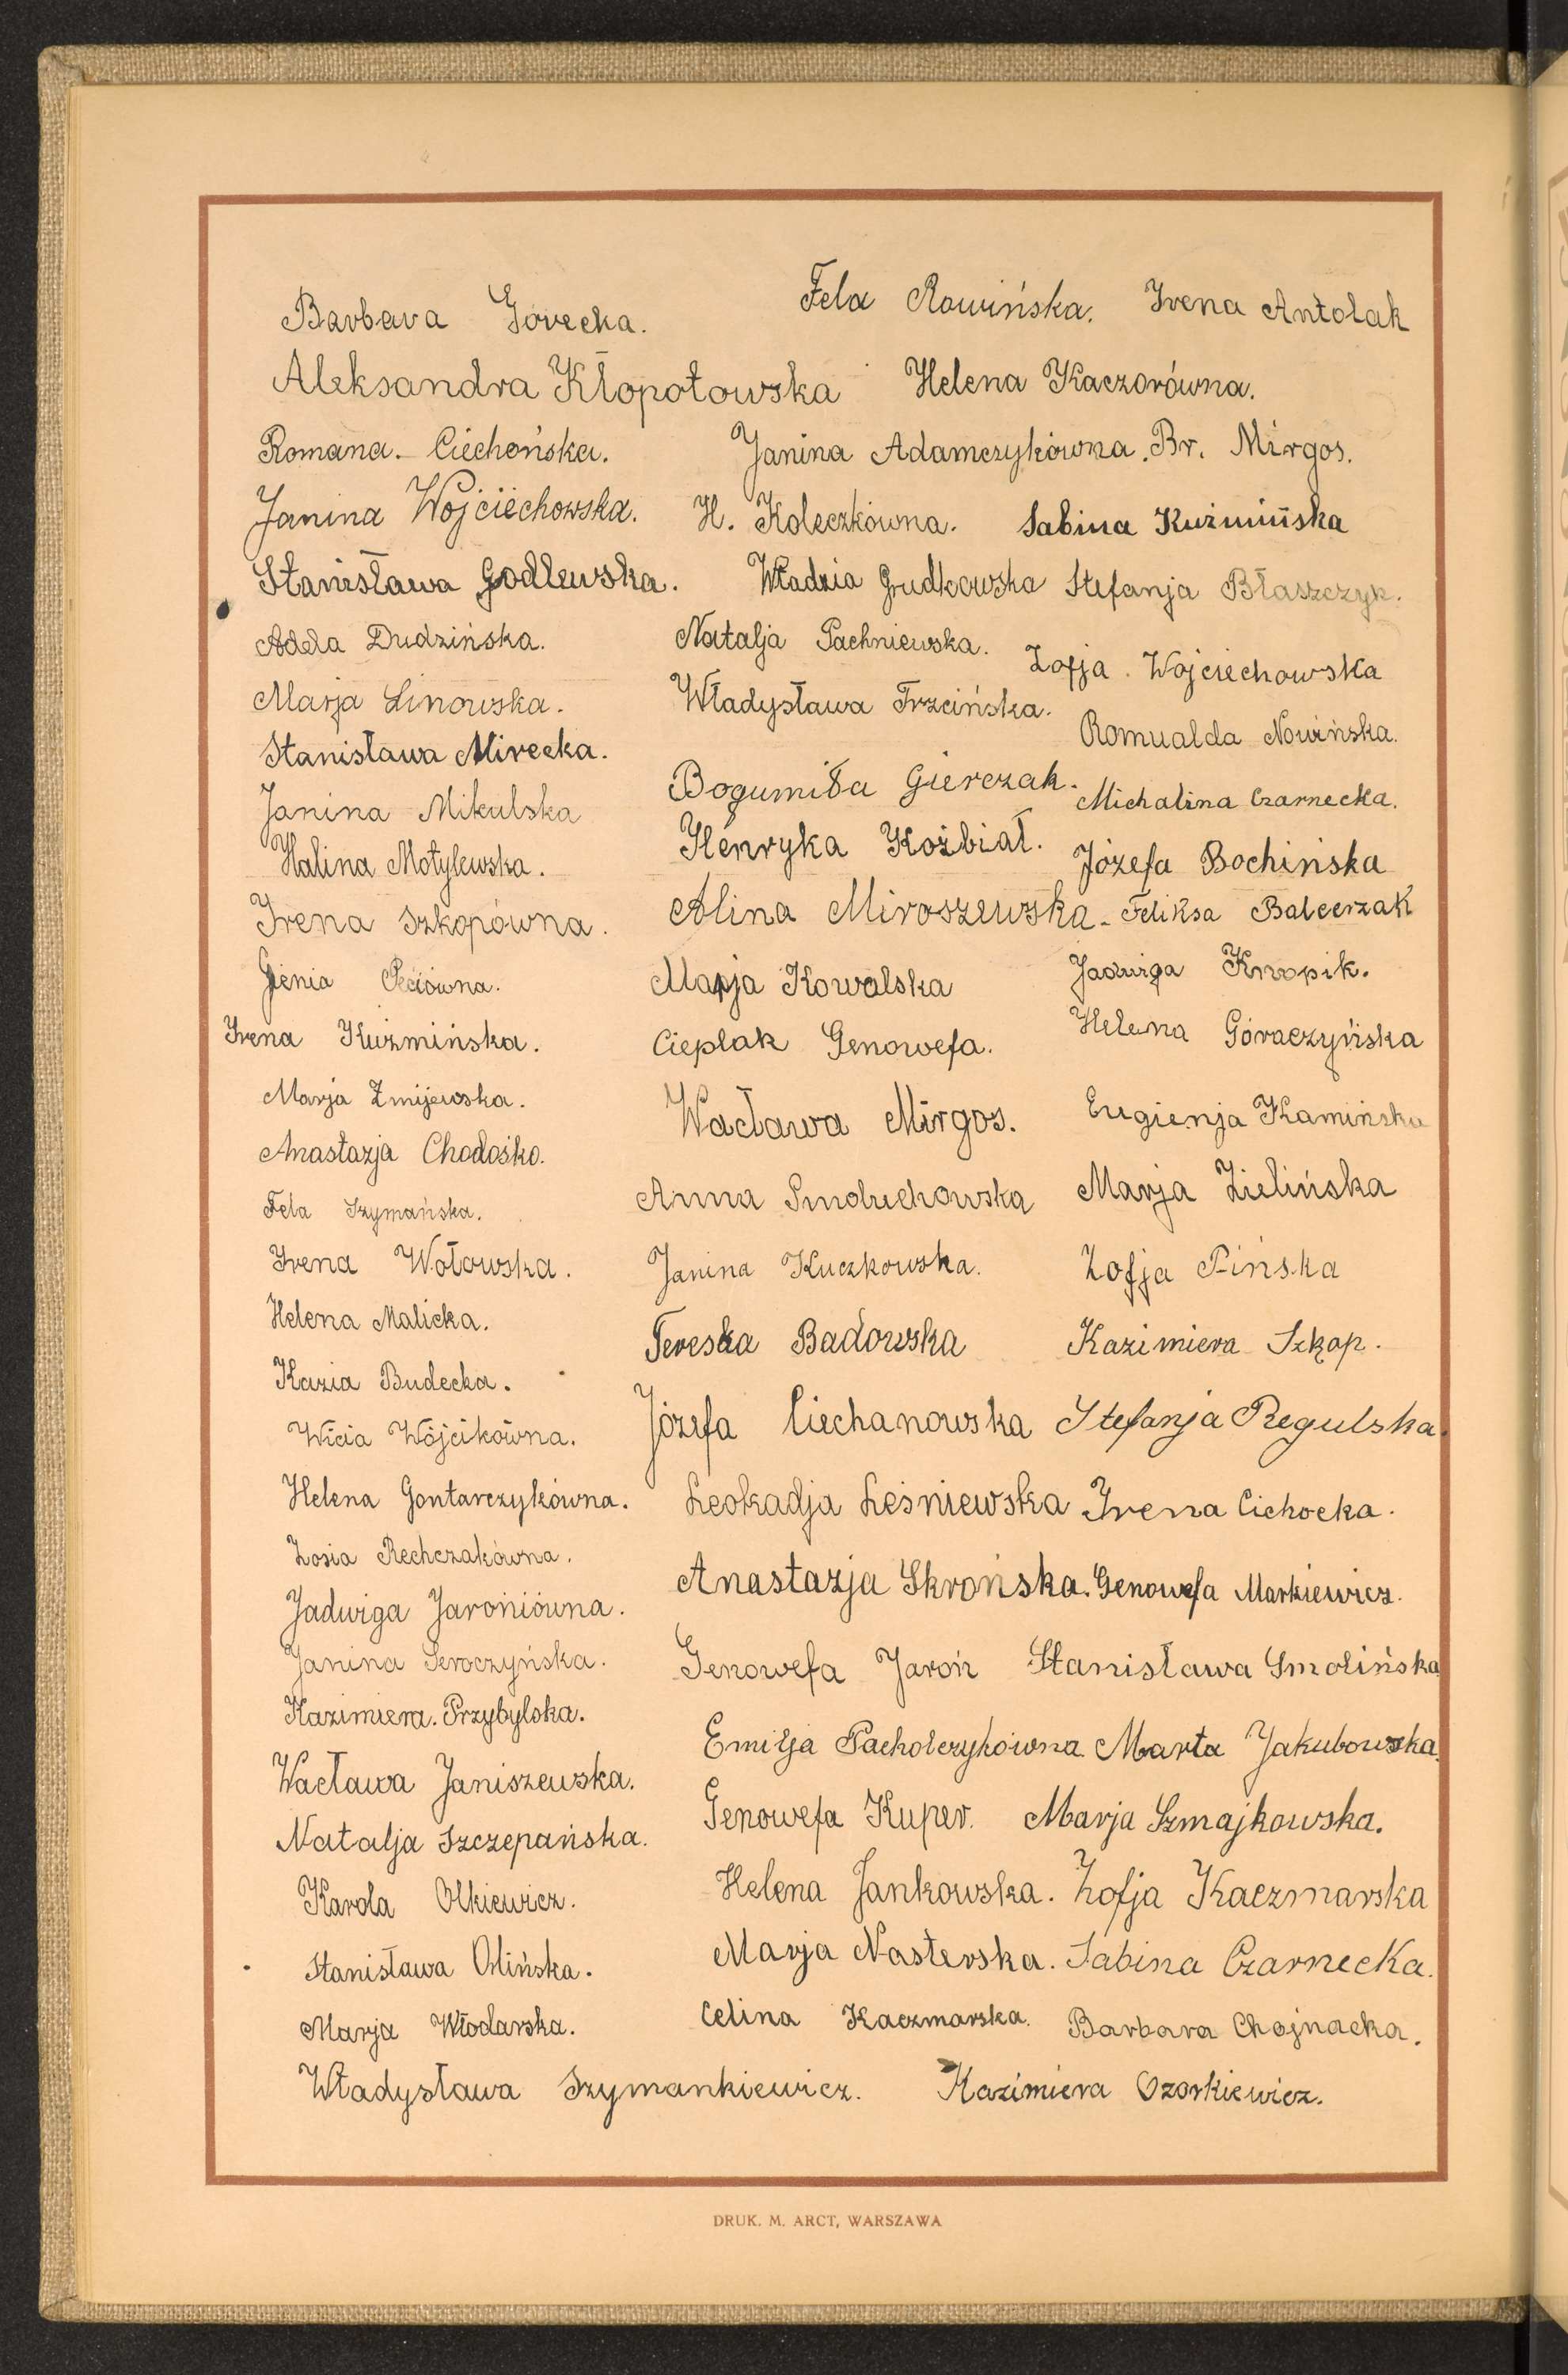 Barbara Górecka. Fela Rowińska. Irena Antolak
Aleksandra Kłopotowska Helena Kaczorówna.
Romana. Ciechońska. Janina Adamczykówna. Br. Mirgos.
Janina Wojciechowska. H. Koleczkówna. Sabina Kuźmińska
Stanisława Godlewska. Władzia Grudkowska Stefanja Błaszczyk.
Adela Dudzińska. Natalja Pachniewska. Zofja Wojciechowska
Marja Linowska. Władysława Trzcińska. Romualda Nowińska.
Stanisława Mirecka. Bogumiła Gierczak. Michalina Czarnecka.
Janina Mikulska Henryka Koźbiał. Józefa Bochińska
Halina Motylewska. Alina Miroszewska. Feliksa Balcerzak
Irena Szkopówna. Marja Kowalska Jadwiga Knopik.
Gienia Cieplak Genowefa. Helena Góraczyńska
Irena Kuźmińska. Wacława Mirgos. Eugienja Kamińska
Marja Żmijewska. Anna Smoluchowska Marja Zielińska
Anastazja Chodośko. Janina Kuczkowska. Zofja Pińska
Fela Szymańska. Tereska Badowska Kazimiera Szkop.
Irena Wołowska. Józefa Ciechanowska Stefanja Regulska.
Helena Malicka. Leokadja Leśniewska Irena Cichocka.
Kazia Budecka. Anastazja Skrońska. Genowefa Markiewicz.
Wicia Wójcikówna. Genowefa Jaroń Stanisława Smolińska
Helena Gontarczykówna. Emilja Pacholczykówna Marta Jakubowska.
Zosia Rechczakówna. Genowefa Kuper. Marja Szmajkowska.
Jadwiga Jaroniówna. Helena Jankowska. Zofja Kaczmarska
Janina Seroczyńska. Marja Nasterska. Sabina Czarnecka.
Kazimiera. Przybylska. Celina Kaczmarska. Barbara Chojnacka.
Wacława Janiszewska.
Natalja Szczepańska.
Karola Olkiewicz.
Stanisława Orlińska.
Marja Włodarska.
Władysława Szymankiewicz. Kazimiera Ozorkiewicz.
DRUK. M. ARCT, WARSZAWA